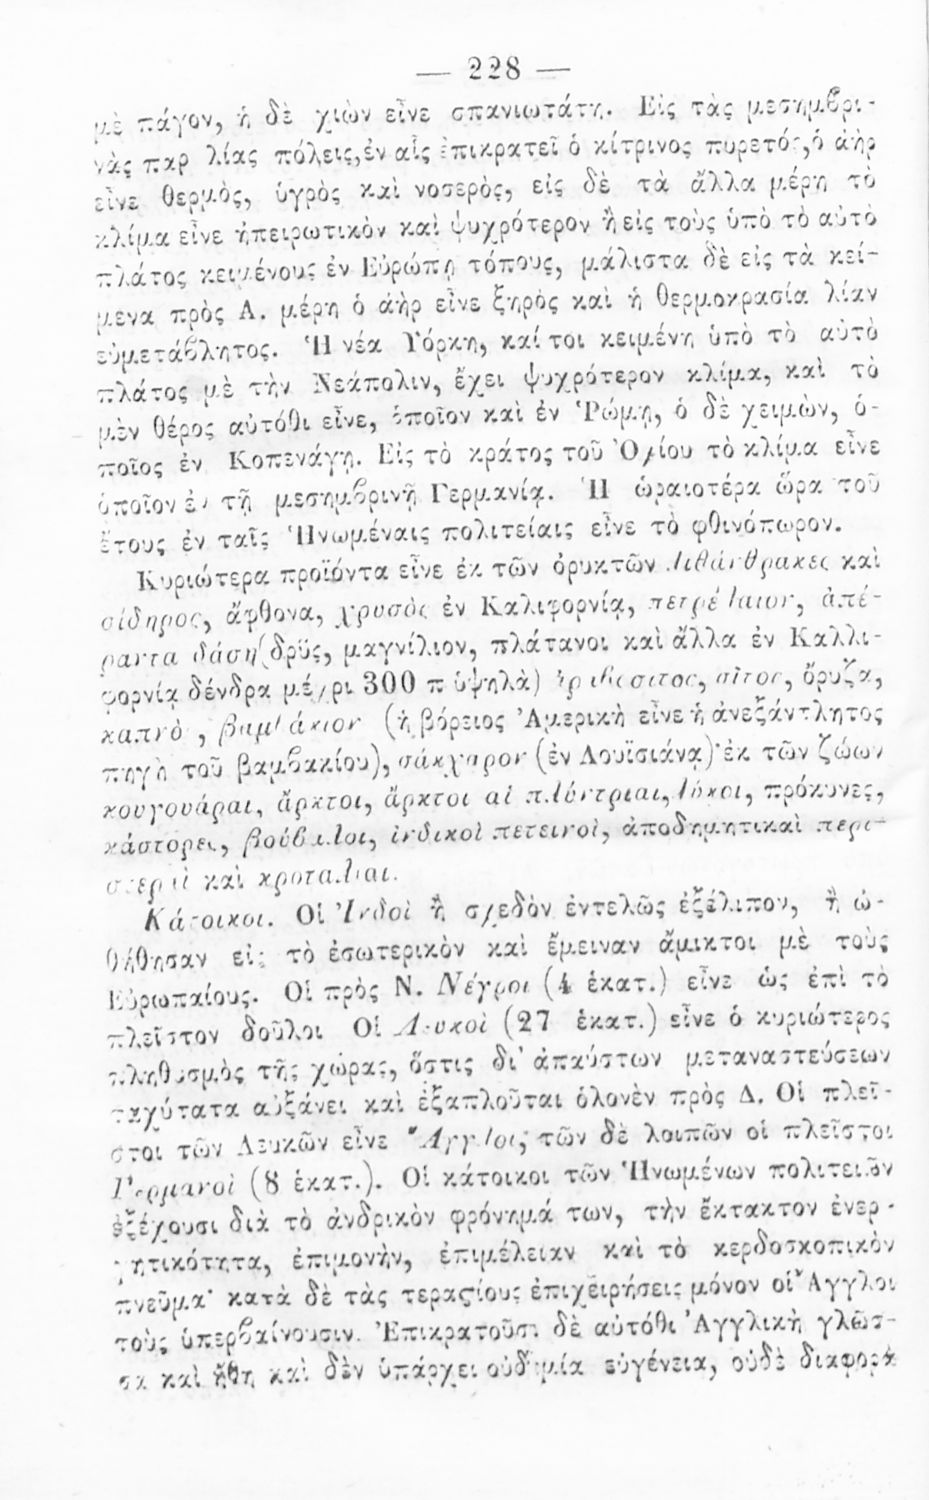 — 228 —
μὲ πάγον, ἡ δὲ χιὼν εἶνε σπανιωτάτη. Εἰς τὰς μεσημβρι-
νὰς παρ λίας πόλεις, ἐν αἷς ἐπικρατεῖ ὁ κίτρινος πυρετός, ὁ ἀὴρ
εἶνε θερμὸς, ὑγρὸς καὶ νοσερὸς, εἰς δὲ τὰ ἄλλα μέρη τὸ
κλίμα εἶνε ἠπειρωτικὸν καὶ ψυχρότερον ἢ εἰς τοὺς ὑπὸ τὸ αὐτὸ
πλάτος κειμένους ἐν Εὐρώπῃ τόπους, μάλιστα δὲ εἰς τὰ κεί-
μενα πρὸς Α. μέρη ὁ ἀὴρ εἶνε ξηρὸς καὶ ἡ θερμοκρασία λίαν
εὐμετάβλητος. Ἡ νέα Ὑόρκη, καί τοι κειμένη ὑπὸ τὸ αὐτὸ
πλάτος μὲ τὴν Νεάπολιν, ἔχει ψυχρότερον κλίμα, καὶ τὸ
μὲν θέρος αὐτόθι εἶνε, ὁποῖον καὶ ἐν Ῥώμῃ, ὁ δὲ χειμὼν, ὁ-
ποῖος ἐν Κοπενάγῃ. Εἰς τὸ κράτος τοῦ Ὀχίου τὸ κλίμα εἶνε
ὁποῖον ἐν τῇ μεσημβρινῇ Γερμανίᾳ. Ἡ ὡραιοτέρα ὥρα τοῦ
ἔτους ἐν ταῖς Ἡνωμέναις πολιτείαις εἶνε τὸ φθινόπωρον.
Κυριώτερα προϊόντα εἶνε ἐκ τῶν ὀρυκτῶν λιθάνθρακες καὶ
σίδηρος, ἄφθονα, χρυσὸς ἐν Καλιφορνίᾳ, πετρέλαιον, ἀπέ-
ραντα δάση (δρῦς, μαγνίλιον, πλάτανοι καὶ ἄλλα ἐν Καλλι-
φορνίᾳ δένδρα μέχρι 300 π ὑψηλὰ) ἀραβόσιτος, σῖτος, ὄρυζα,
καπνὸς, βαμβάκιον (ἡ βόρειος Ἀμερικὴ εἶνε ἡ ἀνεξάντλητος
πηγὴ τοῦ βαμβακίου), σάκχαρον (ἐν Λουϊσιάνᾳ)· ἐκ τῶν ζώων
κουγουάραι, ἄρκτοι, ἄρκτοι αἱ πλύντριαι, λύκοι, πρόκυνες,
κάστορες, βούβαλοι, ἰνδικοὶ πετεινοὶ, ἀποδημητικαὶ περι-
στεραὶ καὶ κροταλίαι.
Κάτοικοι. Οἱ Ἰνδοὶ ἢ σχεδὸν ἐντελῶς ἐξέλιπον, ἢ ὠ-
θήθησαν εἰς τὸ ἐσωτερικὸν καὶ ἔμειναν ἄμικτοι μὲ τοὺς
Εὐρωπαίους. Οἱ πρὸς Ν. Νέγροι (4 ἑκατ.) εἶνε ὡς ἐπὶ τὸ
πλεῖστον δοῦλοι Οἱ Λευκοὶ (27 ἑκατ.) εἶνε ὁ κυριώτερος
πληθυσμὸς τῆς χώρας, ὅστις δι' ἀπαύστων μεταναστεύσεων
ταχύτατα αὐξάνει καὶ ἐξαπλοῦται ὁλονὲν πρὸς Δ. Οἱ πλεῖ-
στοι τῶν Λευκῶν εἶνε Ἄγγλοι, τῶν δὲ λοιπῶν οἱ πλεῖστοι
Γερμανοὶ (8 ἑκατ.). Οἱ κάτοικοι τῶν Ἡνωμένων πολιτειῶν
ἐξέχουσι διὰ τὸ ἀνδρικὸν φρόνημά των, τὴν ἔκτακτον ἐνερ-
γητικότητα, ἐπιμονὴν, ἐπιμέλειαν καὶ τὸ κερδοσκοπικὸν
πνεῦμα· κατὰ δὲ τὰς τεραστίους ἐπιχειρήσεις μόνον οἱ Ἄγγλοι
τοὺς ὑπερβαίνουσιν. Ἐπικρατοῦσι δὲ αὐτόθι Ἀγγλικὴ γλῶσ-
σα καὶ ἤθη καὶ δὲν ὑπάρχει οὐδεμία εὐγένεια, οὐδὲ διαφορὰ